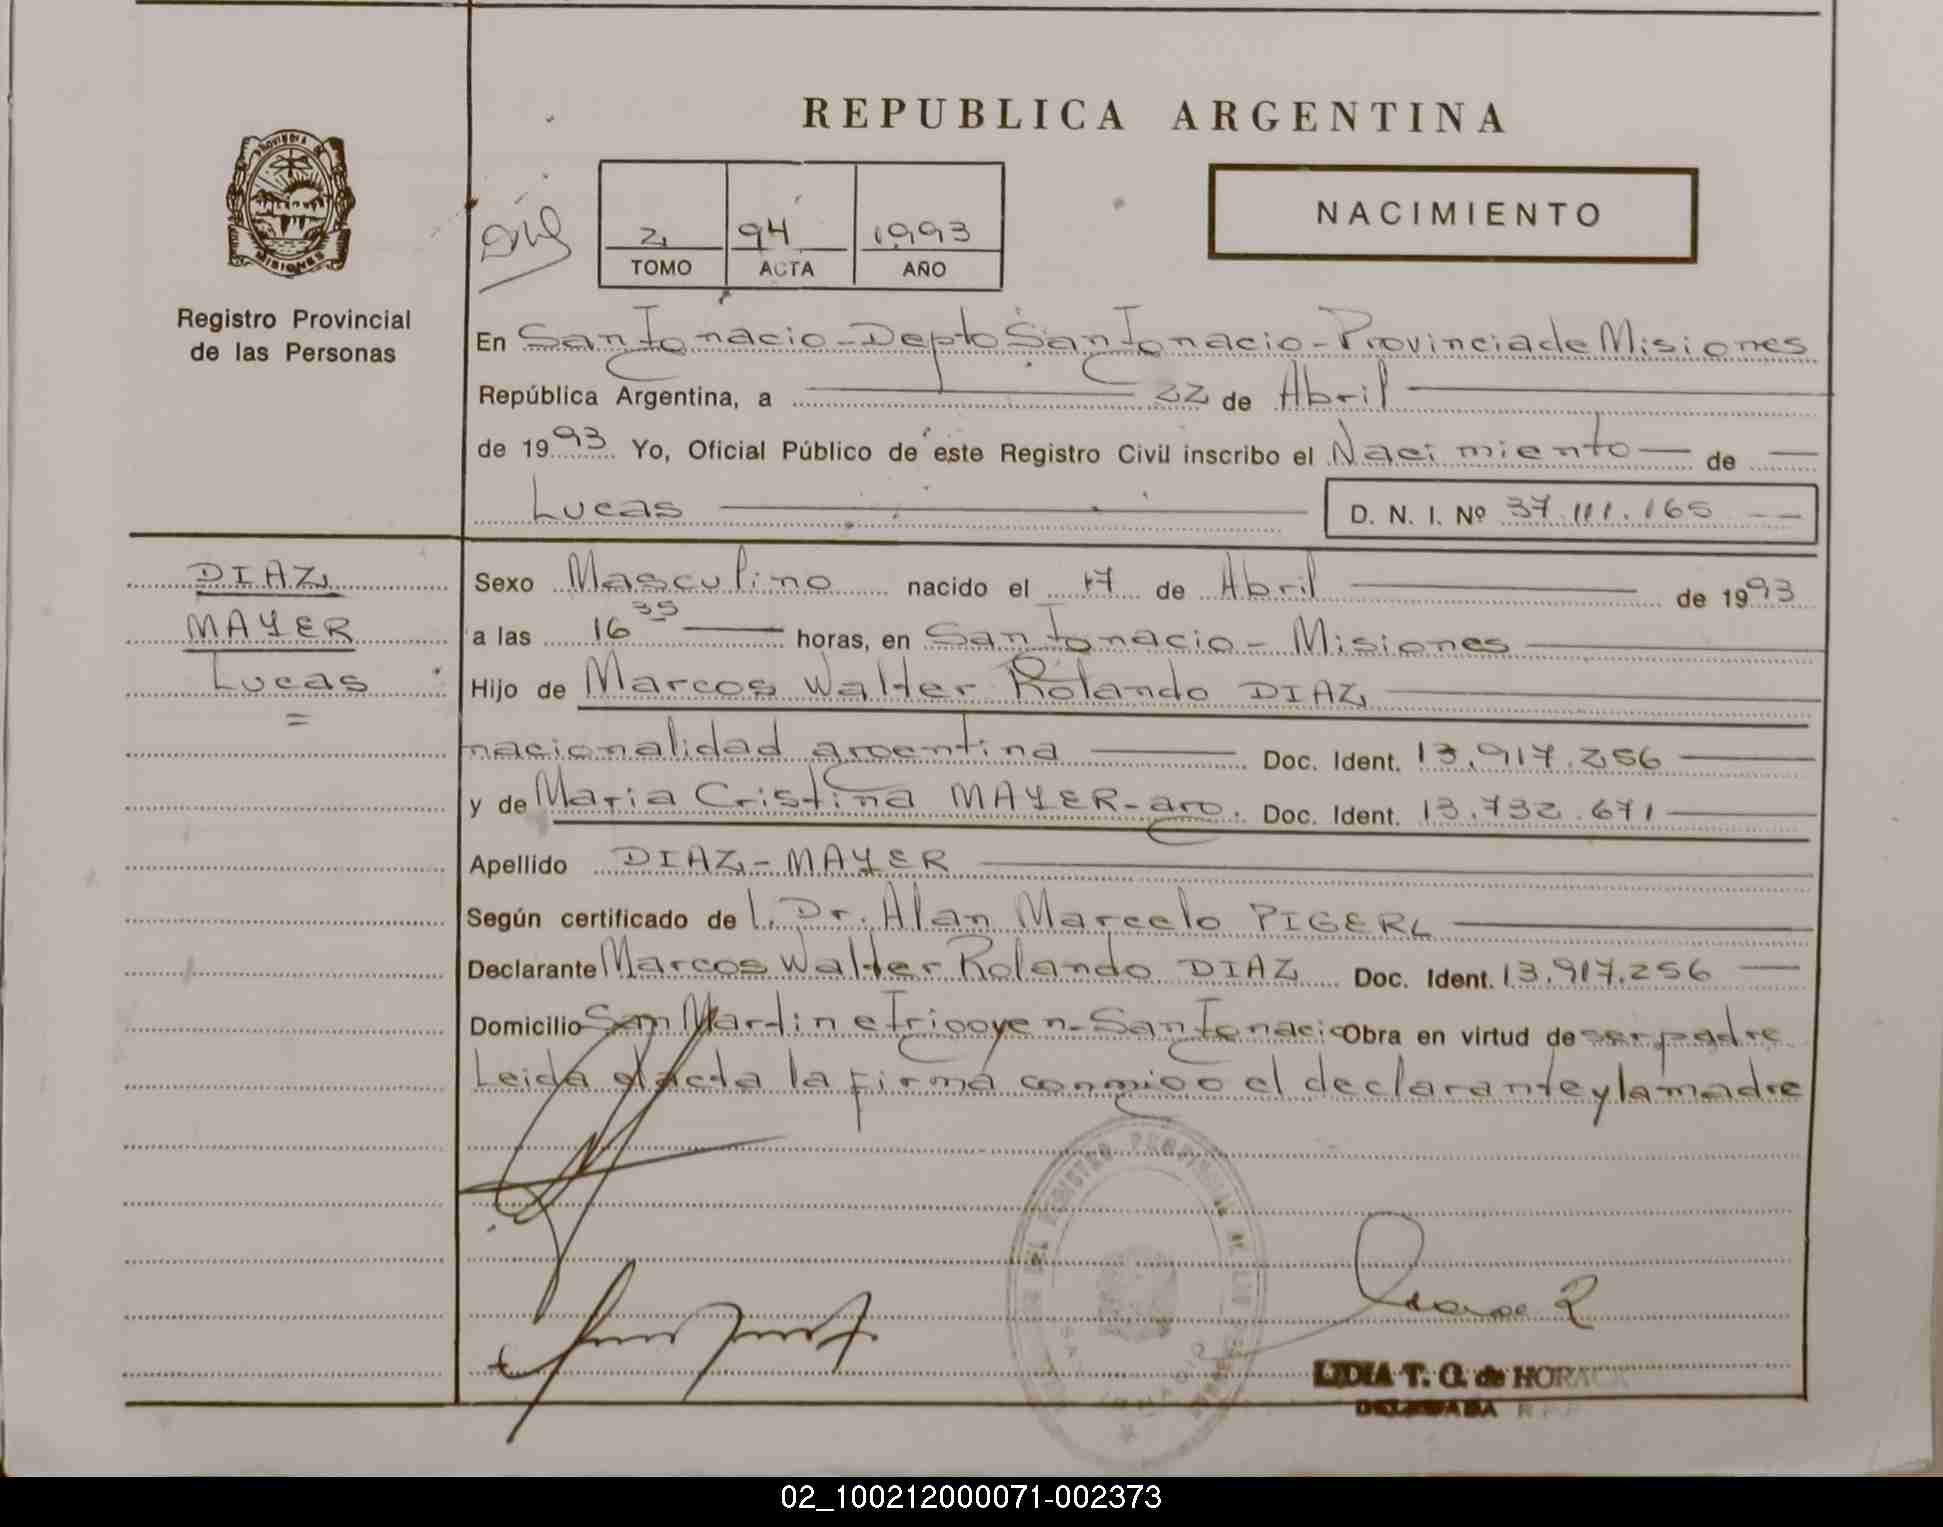 REPUBLICA ARGENTINA
PROVINCIA DE
MISIONES
Registro Provincial
de las Personas
2 94 1993
TOMO ACTA AÑO
NACIMIENTO
En San Ignacio - Depto San Ignacio - Provincia de Misiones
República Argentina, a 22 de Abril
de 1993 Yo, Oficial Público de este Registro Civil inscribo el Nacimiento de
Lucas D. N. I. Nº 37.111.165
DIAZ
MAYER
Lucas
Sexo Masculino nacido el 17 de Abril de 1993
a las 16 35 horas, en San Ignacio - Misiones
Hijo de Marcos Walter Rolando DIAZ
nacionalidad argentina Doc. Ident. 13.917.256
y de Maria Cristina MAYER - arg. Doc. Ident. 13.732.671
Apellido DIAZ - MAYER
Según certificado de l. Dr. Alan Marcelo PIGERL
Declarante Marcos Walter Rolando DIAZ Doc. Ident. 13.917.256
Domicilio San Martin e Irigoyen - San Ignacio Obra en virtud de ser padre
Leida el acta la firma conmigo el declarante y la madre
LIDIA T. G. de HORACK
DELEGADA R.P.P.
02_100212000071-002373